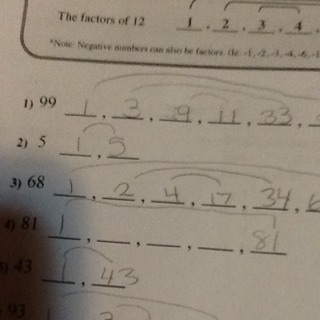 The factors of 12 1, 2, 3, 4,
*Note: Negative numbers can also be factors. (Ie. -1, -2, -3, -4, -6, -1
1) 99 1, 3, 9, 11, 33,
2) 5 1, 5
3) 68 1, 2, 4, 17, 34,
4) 81 1, __, __, __, 81
5) 43 1, 43
93 1